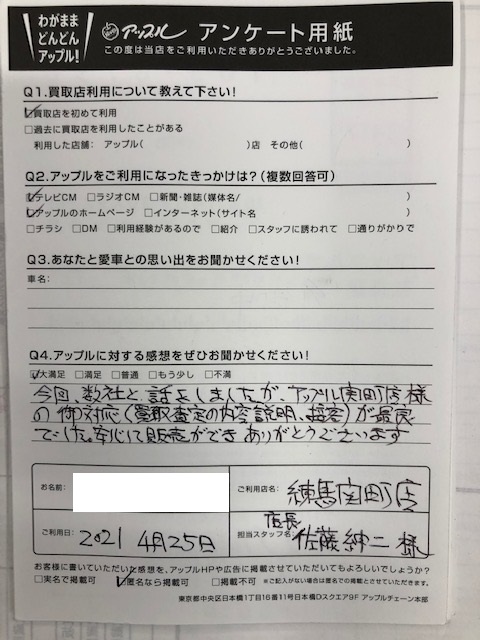 わがまま
どんどん
アップル!
アップル アンケート用紙
この度は当店をご利用いただきありがとうございました。
Q1.買取店利用について教えて下さい!
☑買取店を初めて利用
□過去に買取店を利用したことがある
利用した店舗: アップル( )店 その他( )
Q2.アップルをご利用になったきっかけは?(複数回答可)
☑テレビCM □ラジオCM □新聞・雑誌(媒体名/ )
☑アップルのホームページ □インターネット(サイト名 )
□チラシ □DM □利用経験があるので □紹介 □スタッフに誘われて □通りがかりで
Q3.あなたと愛車との思い出をお聞かせください!
車名:
Q4.アップルに対する感想をぜひお聞かせください!
☑大満足 □満足 □普通 □もう少し □不満
今回、数社と、話をしましたが、アップル関町店、様
の御対応(買取査定の内容説明、接客)が最良
でした。安心して販売ができ ありがとうございます
お名前:
ご利用店名: 練馬関町店
ご利用日: 2021 4月25日
担当スタッフ名: 店長 佐藤紳二 様
お客様に書いていただいた感想を、アップルHPや広告に掲載させていただいてもよろしいでしょうか?
□実名で掲載可 ☑匿名なら掲載可 □掲載不可 ※ご記入がない場合は匿名での掲載とさせていただきます。
東京都中央区日本橋1丁目16番11号日本橋Dスクエア9F アップルチェーン本部